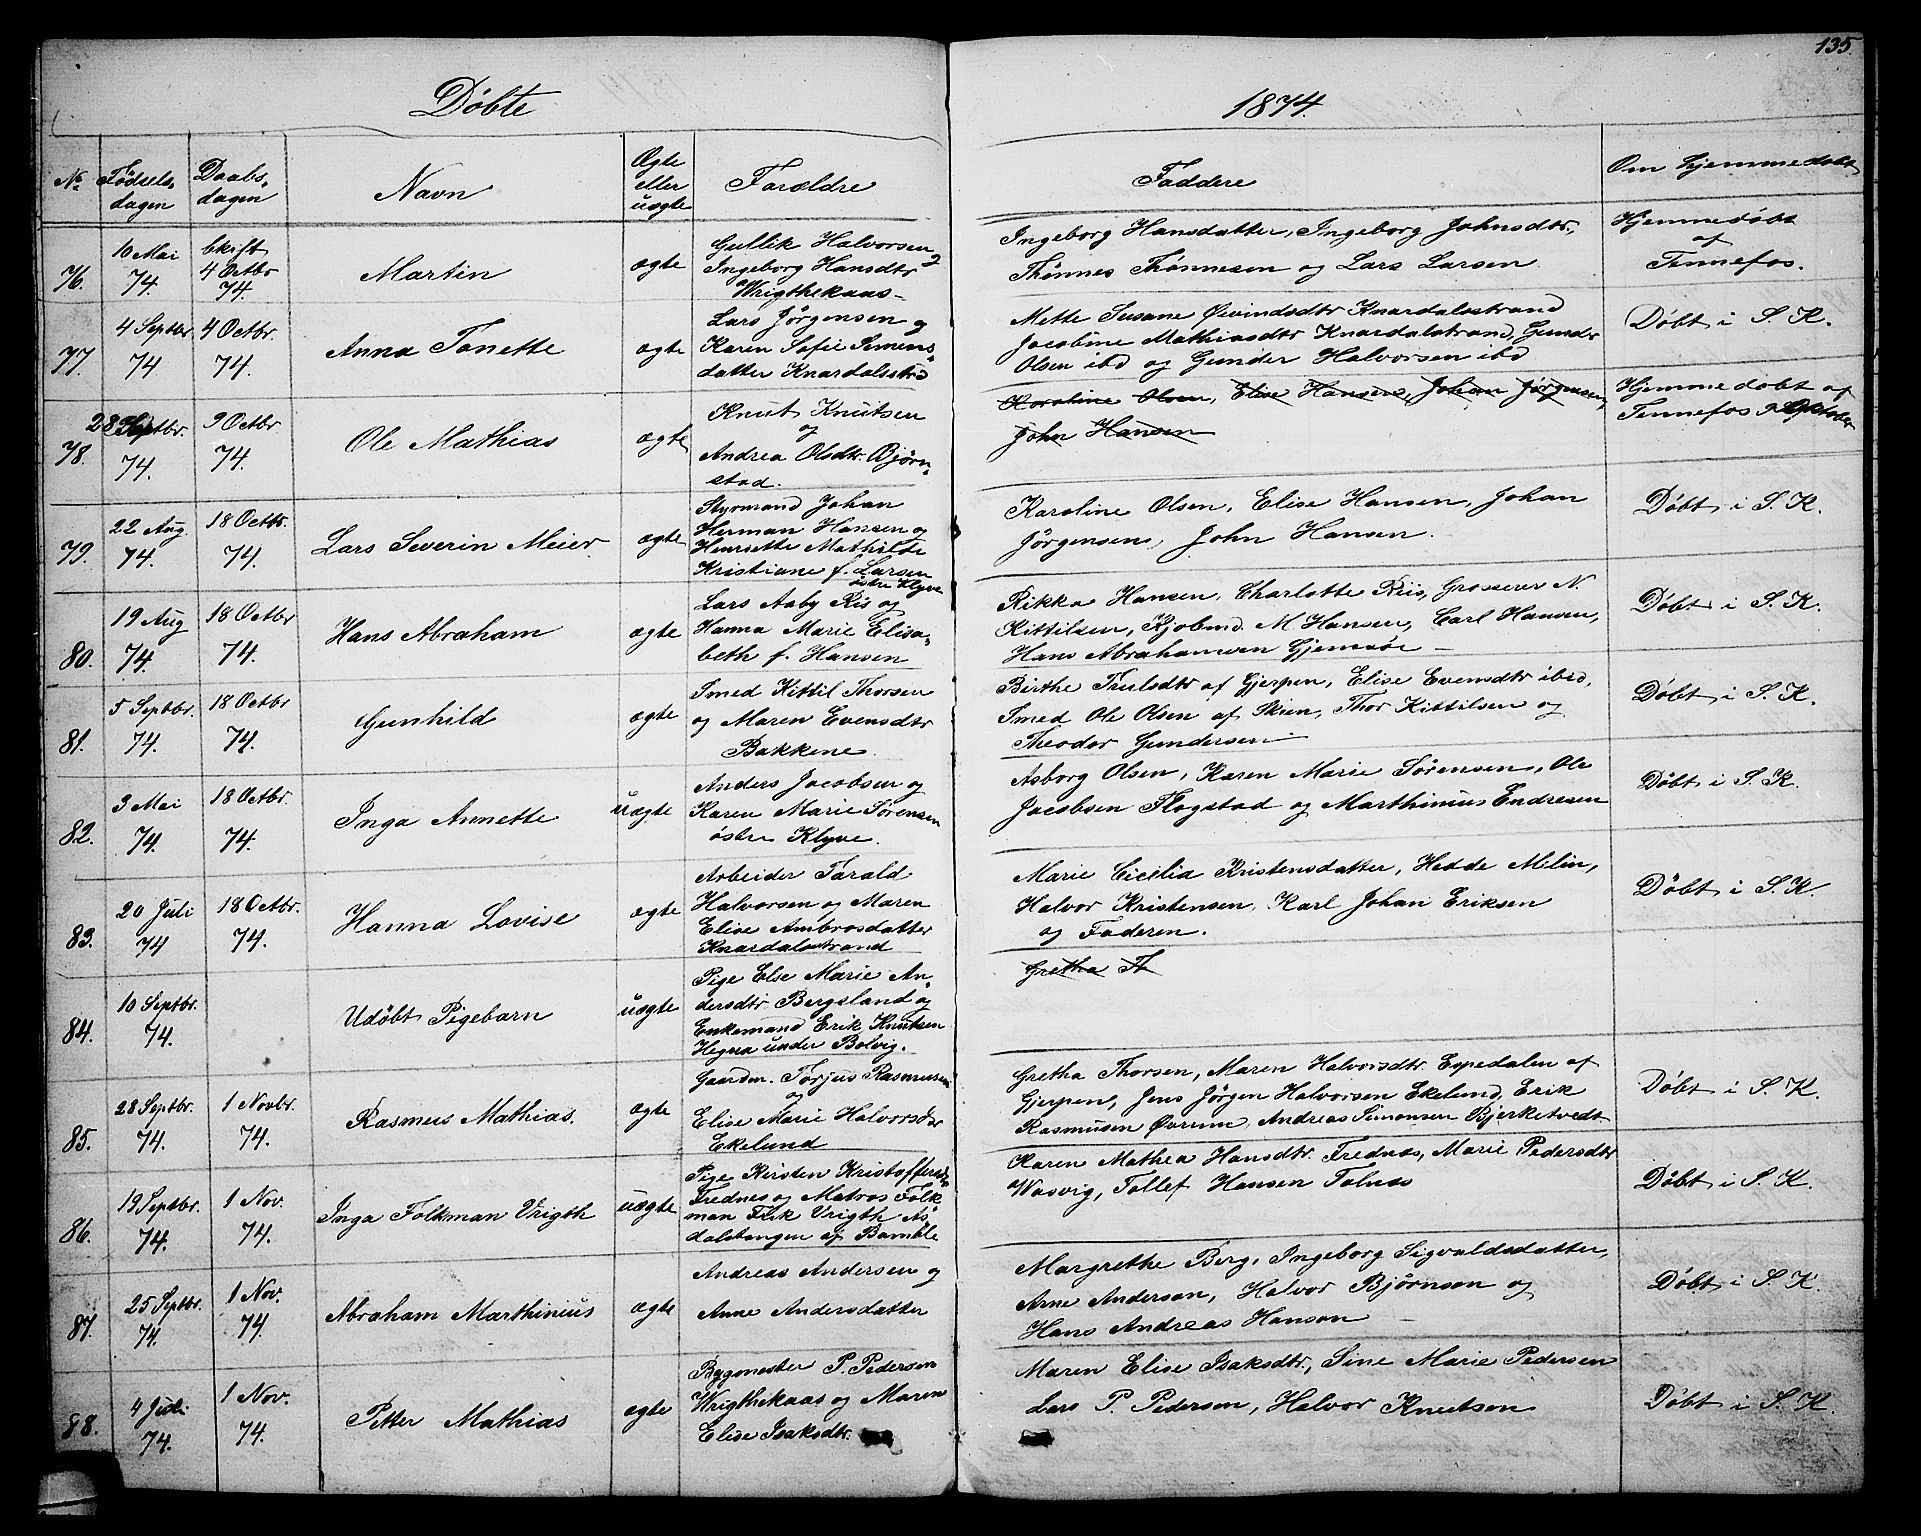 135.
Döbte 1874.
No. Födsels-dagen Daabs-dagen Navn Ægte eller uægte Forældre Faddere Om hjemmedöbt
76. 10 Mai 74. bkift. 4 Octbr 74. Martin ægte
Gullik Halvorsen og
Ingeborg Hansdtr
Wrigthekaas-
Ingeborg Hansdatter, Ingeborg Johnsdtr.,
Thönnes Thönnesen og Lars Larsen
Hjemmedöbt
af
Tennefos.
77. 4 Septbr 74 4 Octbr. 74. Anna Tonette ægte
Lars Jörgensen og
Karen Sofie Simens-
datter Knardalsstrd
Mette Susane Øivindsdtr Knardalsstrand
Jacobine Mathiasdtr Knardalstrand, Gundr
Olsen ibd og Gunder Halvorsen ibd
Döbt i S. K.
78. 28 Septbr. 74. 9 Octbr 74. Ole Mathias ægte
Knut Knutsen
og
Andrea Olsdtr. Björn-
stad.
Karoline Olsen, Elise Hansen, Johan Jörgensen,
John Hansen
Hjemmedöbt af
Tennefos 9 Oktober
79. 22 Aug. 74. 18 Octbr. 74. Lars Severin Meier. ægte
Styrmand Johan
Herman Hansen og
Henriette Mathilde
Kristiane f. Larsen
östre Klyve
Karoline Olsen, Elise Hansen, Johan
Jörgensen, John Hansen.
Döbt i S. K.
80. 19 Aug 74. 18 Octbr 74. Hans Abraham ægte
Lars Aaby Ris og
Hanna Marie Elisa-
beth f. Hansen
Rikka Hansen, Charlotte Riis, Grosserer N.
Kittilsen, Kjöbmd. M Hansen, Carl Hansen,
Hans Abrahamsen Gjemsöe
Döbt i S. K.
81. 5 Septbr. 74. 18 Octbr 74. Gunhild ægte
Smed Kittil Thorsen
og Maren Evensdtr
Bakkene.
Birthe Trulsdtr af Gjerpen, Elise Evensdtr ibid,
Smed Ole Olsen af Skien, Thor Kittilsen og
Theodor Gundersen
Döbt i S. K.
82. 3 Mai 74. 18 Octbr. 74. Inga Annette uægte
Anders Jacobsen og
Karen Marie Sörensen
östre Klyve.
Asborg Olsen, Karen Marie Sörensen, Ole
Jacobsen Flogstad og Marthinius Endresen
Döbt i S. K.
83. 20 Juli 74 18 Octbr. 74. Hanna Lovise ægte
Arbeider Tarald
Halvorsen og Maren
Elise Ambrosdatter
Knardalsstrand
Marie Cicilia Kristensdatter, Hedde Melin,
Halvor Kristensen, Karl Johan Eriksen
og Faderen.
Döbt i S. K.
84. 10 Septbr. 74. Udöbt Pigebarn uægte
Pige Else Marie An-
dersdtr Bergsland og
Enkemand Erik Knutsen
Hegna under Bolvig.
Gretha Th
85. 28 Septbr. 74. 1 Novbr. 74. Rasmus Mathias. ægte
Gaardm. Torjus Rasmusen
og
Elise Marie Halvorsdtr
Ekelund
Gretha Thorsen, Maren Halvorsdtr. Espedalen af
Gjerpen, Jens Jörgen Halvorsen Ekelund, Erik
Rasmusen Øvrum, Andreas Simonsen Bjerketvedt.
Döbt i S. K.
86. 19 Septbr. 74. 1 Nov. 74. Inga Folkman Vrigth uægte
Pige Kirsten Kristoffersdtr
Frednes og Matros Folk
man Frik Vrigth As
dalstangen af Bamble
Karen Mathea Hansdtr. Frednæs, Marie Pedersdtr
Wasvig, Tollef Hansen Folnæs
Döbt i S. K.
87. 25 Septbr. 74. 1 Nov. 74. Abraham Marthinius ægte
Andreas Andersen og
Anne Andersdatter
Margrethe Berg, Ingeborg Sigvaldsdatter,
Arne Anderson, Halvor Björnson og
Hans Andreas Hanson
Döbt i S. K.
88. 4 Juli 74. 1 Nov. 74. Petter Mathias ægte
Bygmester P. Pedersen
Wrigthekaas og Maren
Elise Isaksdtr.
Maren Elise Isaksdtr., Sine Marie Pedersen
Lars P. Pedersen, Halvor Knutsen
Döbt i S. K.